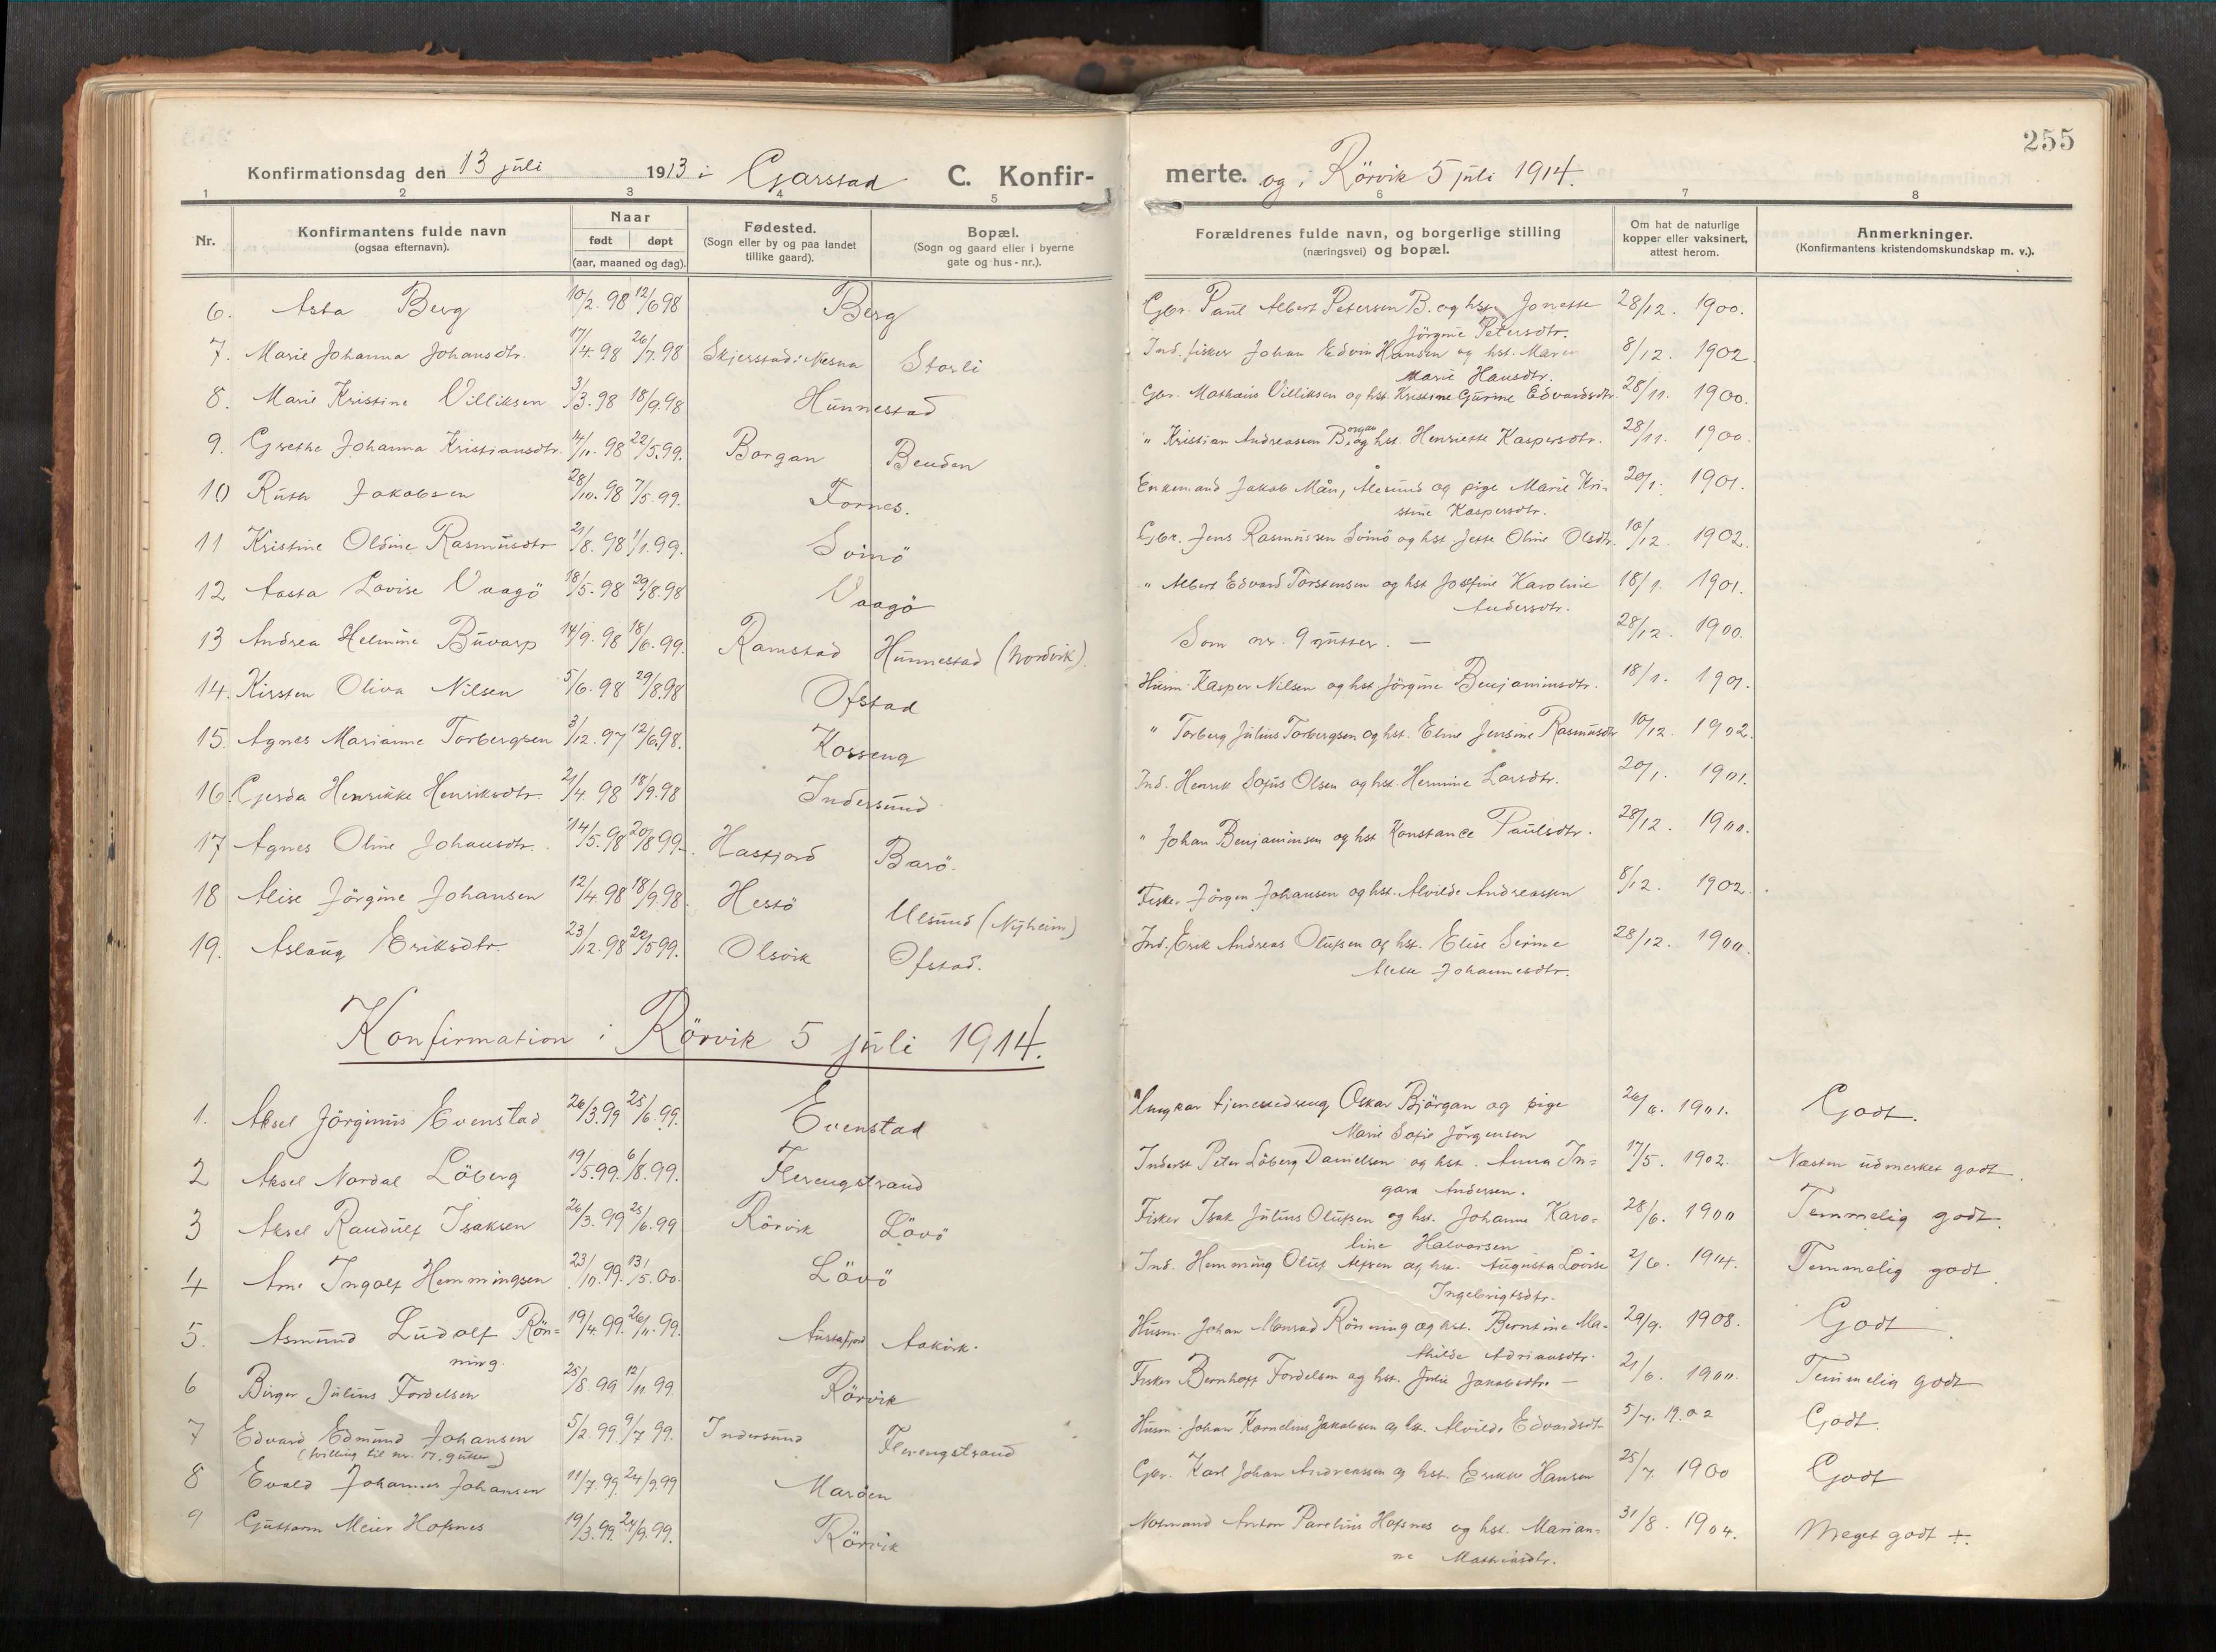 255
Konfirmationsdag den 13 juli 1913 i Garstad C. Konfir-
merte. og i Rörvik 5 juli 1914.
1 2 3 4 5 6 7 8
Nr. Konfirmantens fulde navn (ogsaa efternavn). Naar født døpt (aar, maaned og dag). Fødested. (Sogn eller by og paa landet tillike gaard). Bopæl. (Sogn og gaard eller i byerne gate og hus-nr.). Forældrenes fulde navn, og borgerlige stilling (næringsvei) og bopæl. Om hat de naturlige kopper eller vaksinert, attest herom. Anmerkninger. (Konfirmantens kristendomskundskap m. v.).
6. Asta Berg 10/2. 98 12/6 98 Berg Gbr. Paul Albert Petersen B. og hst. Jonette 28/12. 1900.
Jörgine Petersdtr.
7. Marie Johanna Johansdtr. 17/4. 98 26/7. 98 Skjerstad i Nesna Storli Ind. fisker Johan Edvin Hansen og hst. Maren 8/12. 1902.
Marie Hansdtr.
8. Marie Kristine Villiksen 3/3. 98 18/9. 98 Hunnestad Gbr. Mathæus Villiksen og hst. Kristine Gurine Edvardsdtr. 28/11. 1900.
9. Grethe Johanna Kristiansdtr. 14/11. 98 22/5. 99. Borgan Benden " Kristian Andreassen Borgan og hst. Henriette Kaspersdtr. 28/11. 1900.
10 Ruth Jakobsen 28/10. 98 7/5. 99. Fornes. Enkemand Jakob Mån, Ålesund og pige Marie Kri- 20/1. 1901.
stine Kaspersdtr.
11 Kristine Oldine Rasmusdtr 21/8. 98 1/1. 99. Svinö Gbr. Jens Rasmussen Svinö og hst Jette Oline Olsdtr. 10/12 1902.
12 Aasta Lovise Vaagö 18/5. 98 29/8. 98 Vaagö " Albert Edvard Torstensen og hst Josefine Karoline 18/1. 1901.
Andersdtr.
13 Andrea Helmine Buvarp 14/9. 98 18/6. 99. Ramstad Hunnestad (Nordvik). Som nr. 9 gutter. — 28/12. 1900.
14. Kirsten Oliva Nilsen 5/6. 98 29/8. 98 Ofstad Husm. Kasper Nilsen og hst Jörgine Benjaminsdtr. 18/1. 1901.
15. Agnes Marianne Torbergsen 3/12. 97 12/6. 98. Korseng " Torberg Julius Torbergsen og hst. Eline Jensine Rasmusdtr 10/12. 1902.
16. Gjerda Henrikke Henriksdtr. 21/4. 98 18/9. 98 Indersund Ind. Henrik Sofus Olsen og hst. Hermine Larsdtr. 20/1. 1901.
17 Agnes Oline Johansdtr. 14/5. 98 20/8 99. Hasfjord Barö. " Johan Benjaminsen og hst Konstance Paulsdtr. 28/12. 1900.
18 Alise Jörgine Johansen 12/4. 98 18/9. 98. Hestö Ulsund (Nyheim) Fisker Jörgen Johansen og hst. Alvilde Andreassen 8/12. 1902.
19. Aslaug Eriksdtr. 23/12. 98 22/5 99. Olsvik Ofstad. Ind. Erik Andreas Olufsen og hst. Elise Serine 28/12. 1900.
Mette Johannesdtr.
Konfirmation i Rörvik 5 juli 1914.
1. Aksel Jörginus Evenstad 26/3. 99 25/6. 99. Evenstad Ungkar tjenestedreng Oskar Björgan og pige 1901. Godt.
Marie Sofie Jörgensen
2 Aksel Nordal Löberg 19/5. 99. 6/8. 99. Flerengstrand Inderst Peter Löberg Danielsen og hst. Anna In- 17/5. 1902. Næsten udmerket godt.
gara Andersen.
3 Aksel Randulf Isaksen 26/3. 99 25/6. 99 Rörvik Lövö Fisker Isak Julius Olufsen og hst. Johanne Karo- 28/6. 1900 Temmelig godt.
line Halvorsen
4 Arne Ingolf Hemmingsen 23/10. 99. 13/5. 00. Lövö Ind. Hemming Oluf og hst. Augusta Lovise 2/6. 1914. Temmelig godt.
Ingebrigtsdtr.
5. Asmund Ludolf Rön- 19/4. 99. 26/11. 99. Austafjord Aakvik. Husm. Johan Monrad Rönning og hst. Berntine Ma- 29/9. 1908. Godt.
ning. thilde Adriansdtr.
6 Birger Julius Fordelsen 25/8. 99 12/11 99. Rörvik Fisker Bernhoff Fordelsen og hst. Julie Jakobsdtr. — 21/6. 1900. Temmelig godt
7 Edvard Edmund Johansen 5/2. 99. 9/7 99. Indersund Flerengstrand Husm. Johan Kornelius Jakobsen og hst. Alvilde Edvardsdtr 5/7. 1902 Godt.
(tvilling til nr. 17, gutter)
8 Evald Johannes Johansen 11/7. 99. 24/9. 99 Marøen Gbr. Karl Johan Andreassen og hst. Erikke Hansen 25/7. 1900 Godt
9 Guttorm Meier Hofsnes 19/3. 99. 24/9. 99. Rörvik Notmand Anton Parelius Hofsnes og hst. Marian- 31/8. 1904. Meget godt +.
ne Mathiasdtr.